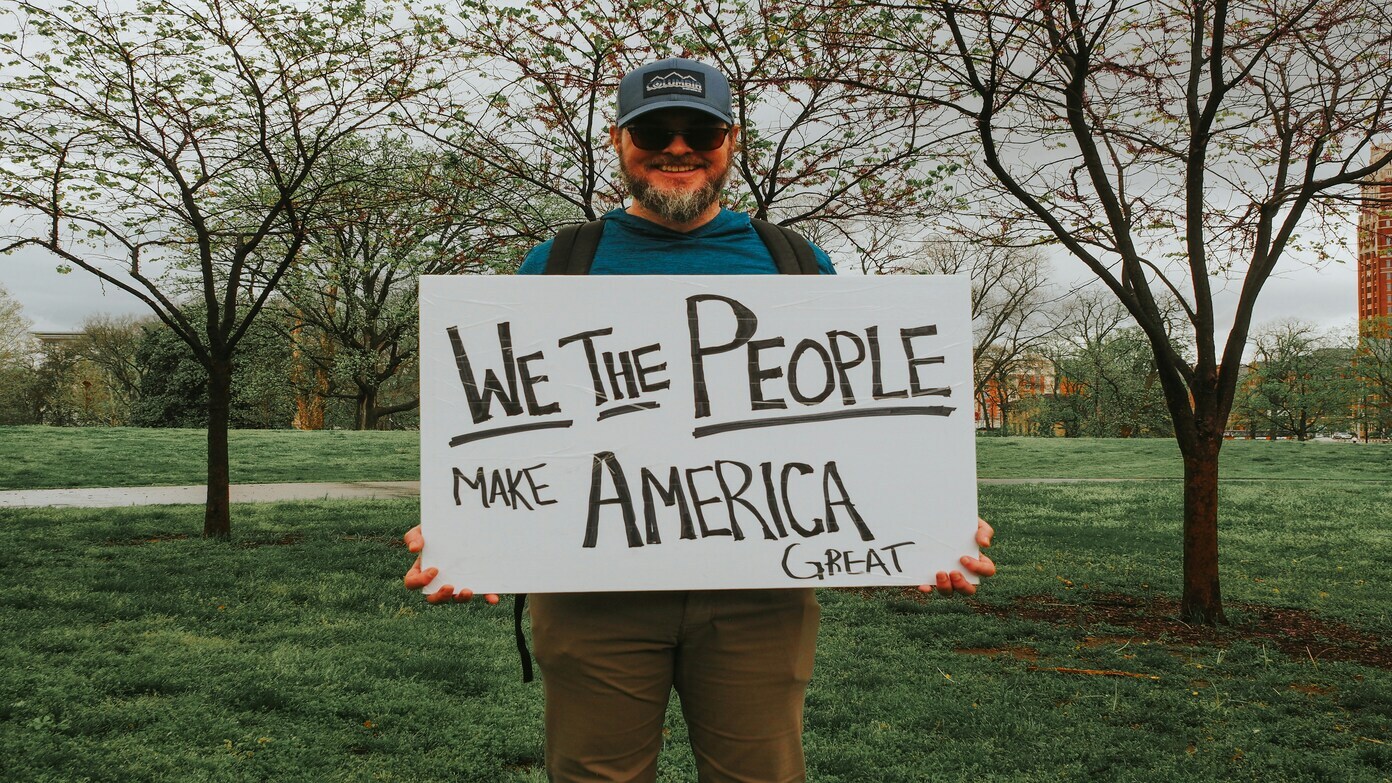 COLUMBIA
WE THE PEOPLE
MAKE AMERICA
GREAT